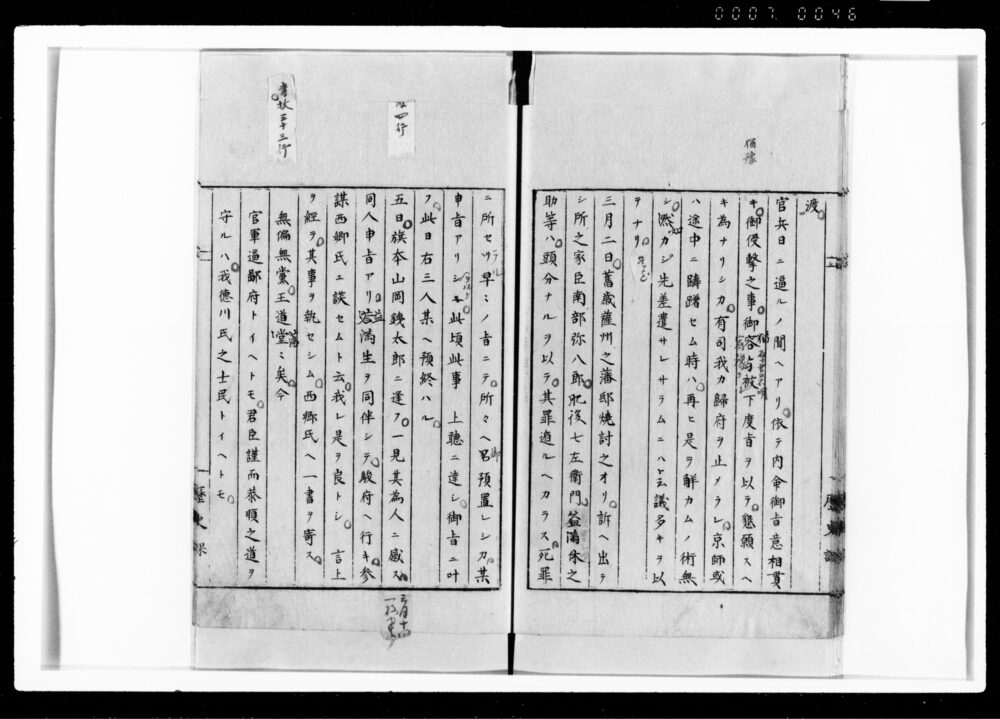 0007 0046
猶豫
渡
官兵日ニ逼ルノ間ヘアリ依テ内命御旨意相貫
キ御侵撃之事御猶 放下度旨ヲ以テ懇願スヘ
キ為ナリシカ有司我カ歸府ヲ止メラレ京師或
ハ途中ニ躊躇セム時ハ再ヒ是ヲ解カムノ術無
シ然カジ先差遣サレサラムニハト云議多キヲ以
テナリ
三月二日舊歳薩州之藩邸燒討之オリ訴ヘ出テ
シ所之家臣南部弥八郎肥後七左衛門益満休之
助等ハ頭分ナルヲ以テ其罪遁ルヘカラス死罪
歴史課
書状三十三行
四行
ニ所セラル早ミノ旨ニテ所々ヘ御預置レシカ某
申旨アリシ 此頃此事 上聴ニ達シ御旨ニ叶
フ此日右三人某ヘ預終ハル
五日旗本山岡銕太郎ニ逢フ一見其為人ニ感ス
同人申旨アリ益満生ヲ同伴シテ駿府ヘ行キ参
謀西郷氏エ談セムト云我レ是ヲ良トシ 言上
ヲ経テ其事ヲ執セシム西郷氏ヘ一書ヲ寄ス
無偏無黨王道蕩ミ矣今
官軍逼鄙府トイヘトモ君臣謹而恭順之道ヲ
守ルハ我德川氏之士民トイヘトモ
歴史課